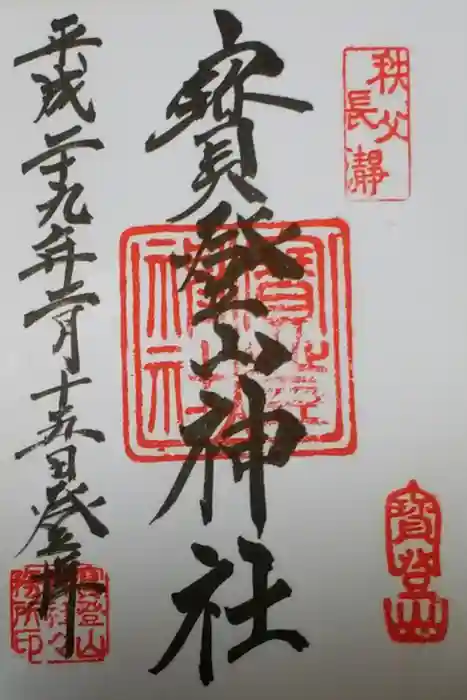 秩父
長瀞
寳登山神社
寳登山
神社
寳登山
平成二十九年三月十五日登拝
寳登山
神社々
務所印